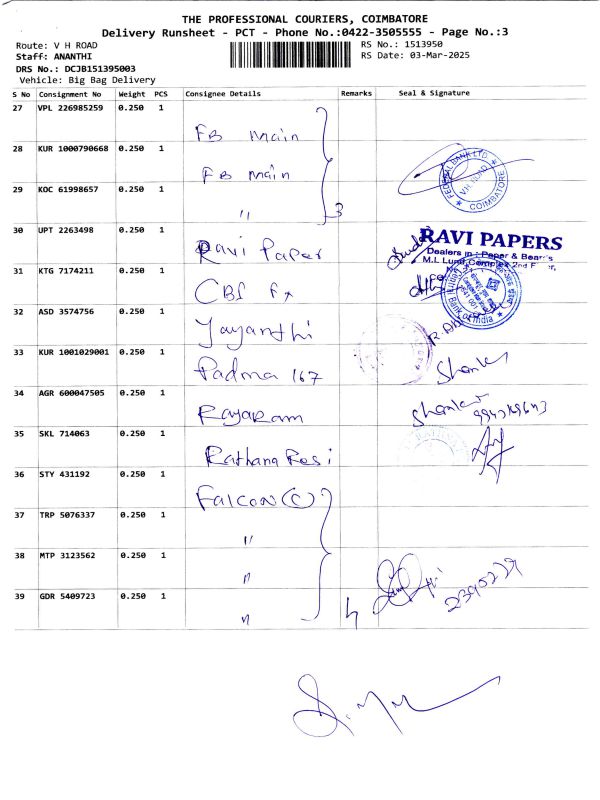 THE PROFESSIONAL COURIERS, COIMBATORE
Delivery Runsheet - PCT - Phone No.:0422-3505555 - Page No.:3
Route: V H ROAD RS No.: 1513950
Staff: ANANTHI RS Date: 03-Mar-2025
DRS No.: DCJB151395003
Vehicle: Big Bag Delivery
S No Consignment No Weight PCS Consignee Details Remarks Seal & Signature
27 VPL 226985259 0.250 1 FB Main
28 KUR 1000790668 0.250 1 FB Main
FEDERAL BANK LTD. V.H. ROAD COIMBATORE
29 KOC 61998657 0.250 1 " 3
30 UPT 2263498 0.250 1 Ravi Paper
RAVI PAPERS
Dealers in : Paper &
31 KTG 7174211 0.250 1 CBS
Bank of India
32 ASD 3574756 0.250 1 Jayanthi
33 KUR 1001029001 0.250 1 Padma 167 Shanker
34 AGR 600047505 0.250 1 Rajaram Shanker
35 SKL 714063 0.250 1 Rathana
36 STY 431192 0.250 1 Falcon (C)
37 TRP 5076337 0.250 1 "
38 MTP 3123562 0.250 1 "
39 GDR 5409723 0.250 1 " 4